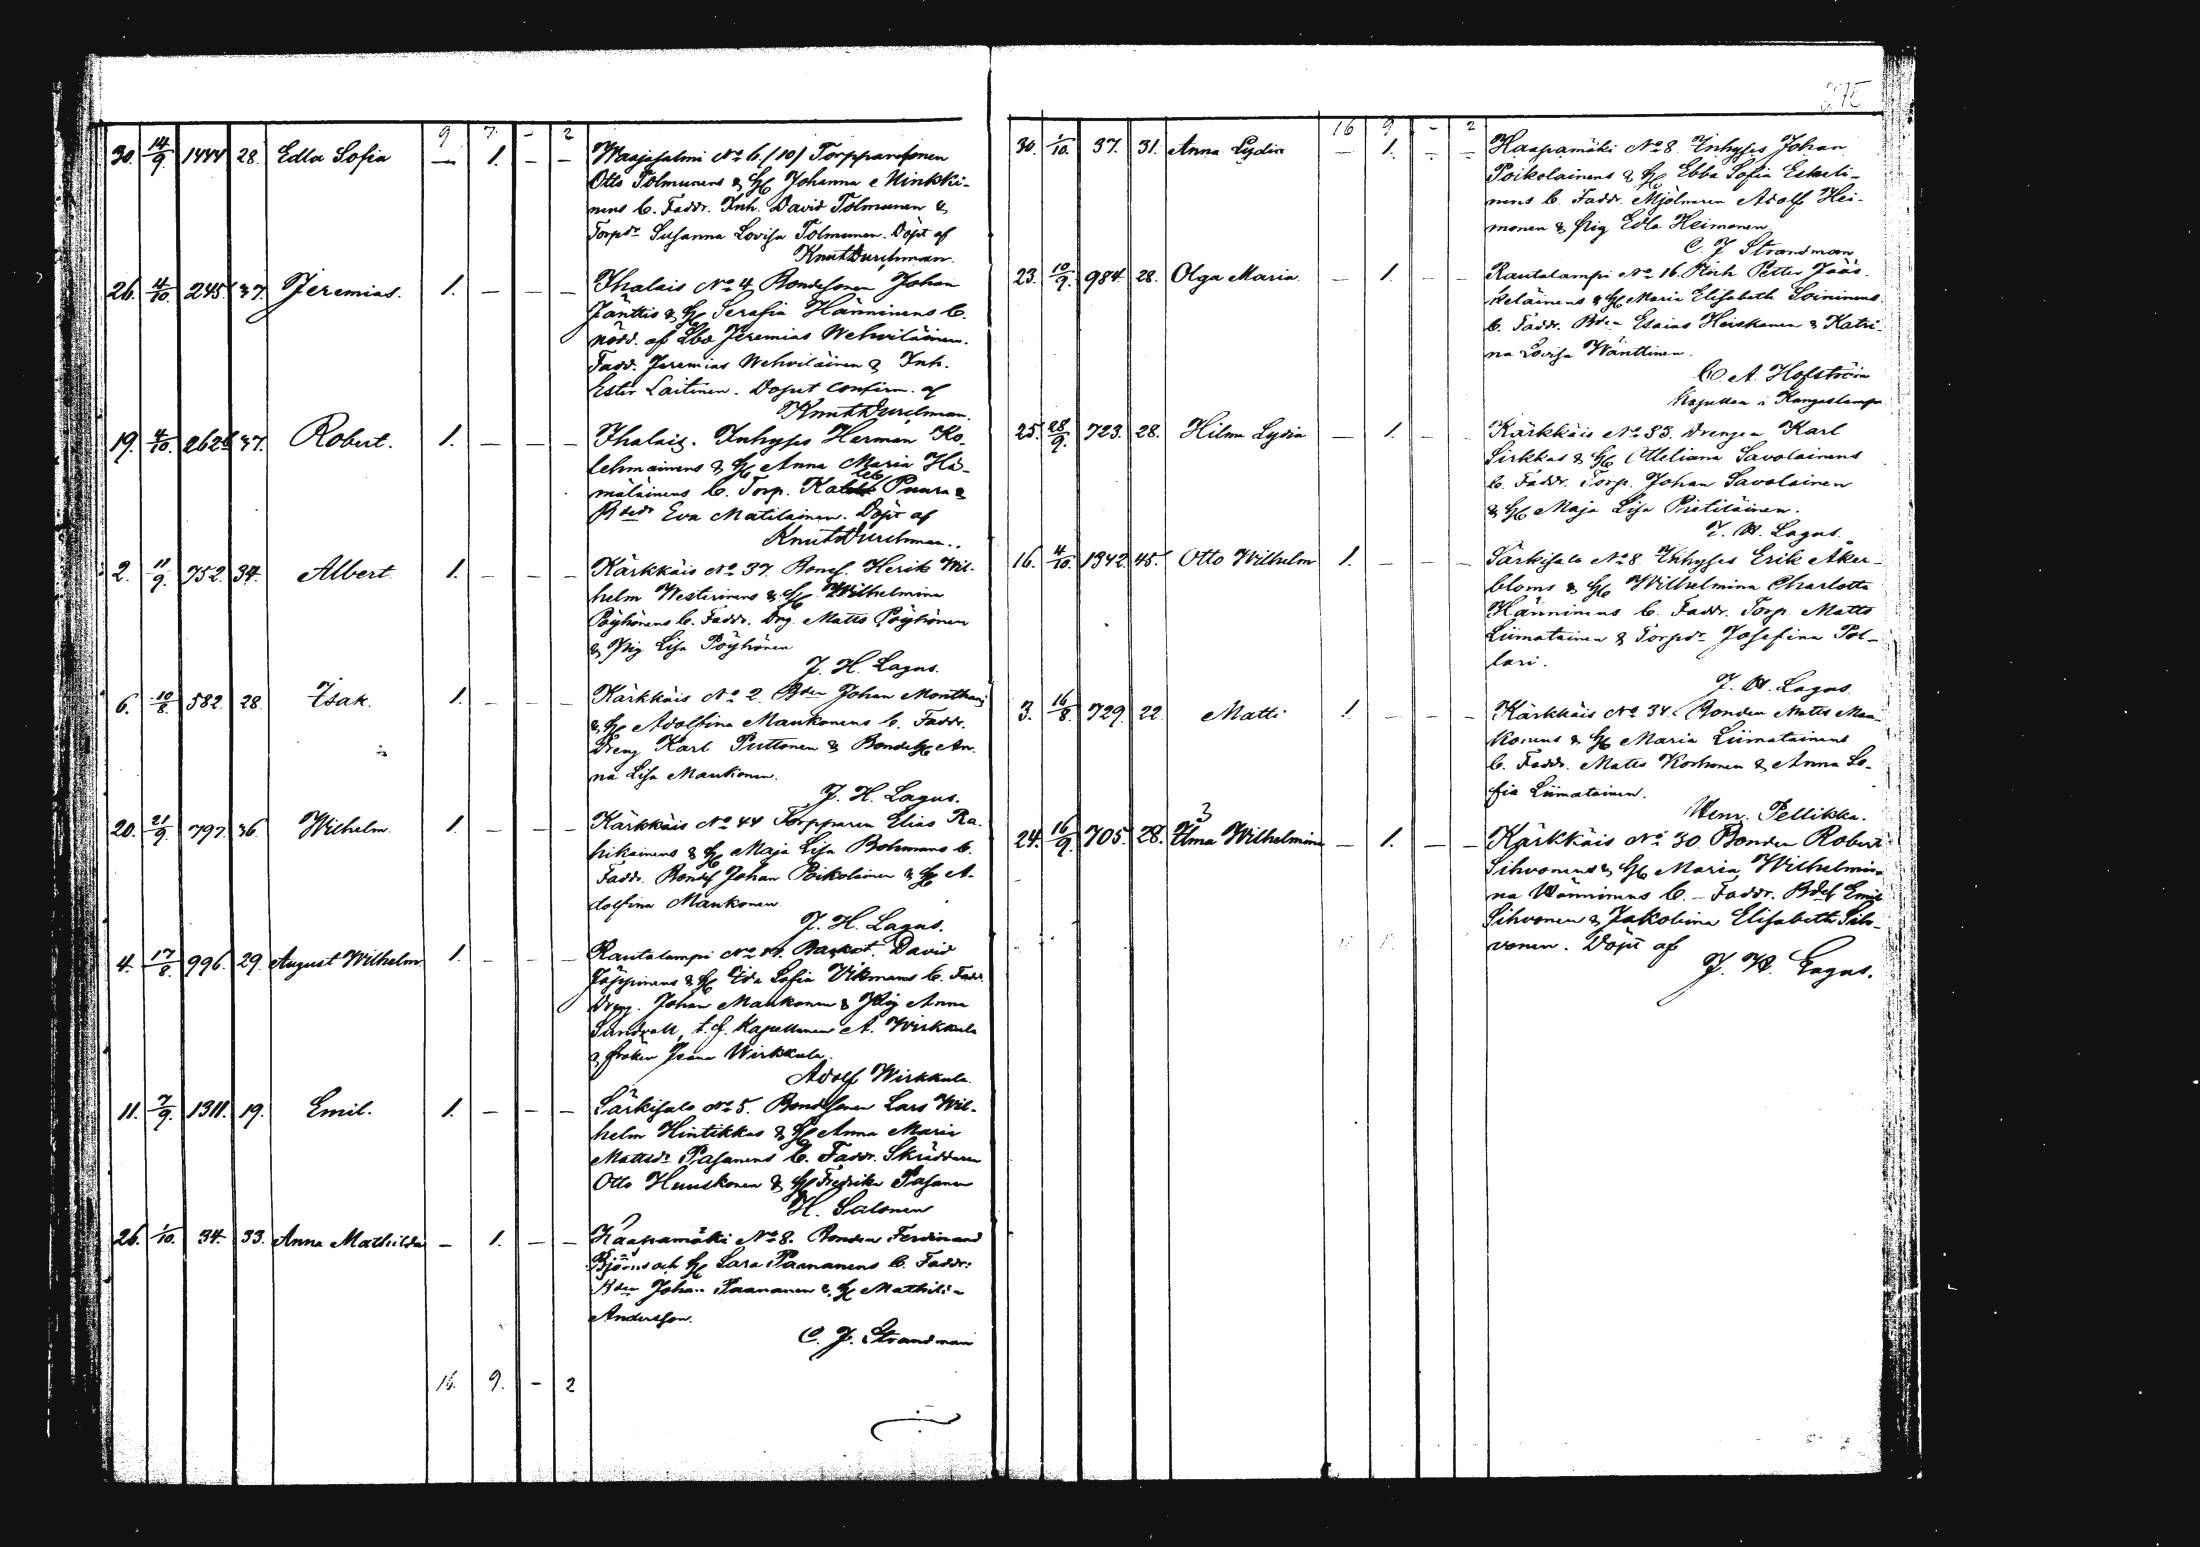 9 7. - 2
30. 14/9. 1444 28. Edla Sofia — 1. — — Waajasalmi No 6./10/ Torpparesonen
Otto Tolmunens & H. Johanna Minkki-
nens b. Faddr. Inh. David Tolmunen &
Torpdr Susanna Lovisa Tolmunen. Döpt af
Knut Durchman.
26. 4/10. 245. 37. Jeremias. 1. — — — Ihalais No 4 Bondesonen Johan
Jänttis & H. Serafia Hänninens b.
nödd. af Lbd Jeremias Wehviläinen.
Fadd. Jeremias Wehviläinen & Inh.
Ester Laitinen. Dopet confirm. af
Knut Durchman.
19. 4/10. 2626 37. Robert. 1. — — — Ihalais. Inhyses Herman Ko-
lehmainens & H. Anna Maria Hä-
mäläinens b. Torp. Puura &
Eva Matilainen. Döpt af
Knut Durchman.
2. 11/9. 752. 34. Albert. 1. — — — Kärkkäis No 37 Bonds. Herik Wil-
helm Westerinens & H. Wilhelmina
Pöyhönens b. Faddr. Drg. Matts Pöyhönen
& Pig Lisa Pöyhönen
J. H. Lagus.
6. 10/8. 582. 28. Isak. 1. — — — Kärkkäis No 2. Bden Johan
& H. Adolfina Maukonens b. Faddr.
Dreng Karl Puttonen & Bondeh. An-
na Lisa Maukonen.
J. H. Lagus.
20. 21/9. 797. 36. Wilhelm. 1. — — — Kärkkäis No 44 Torpparen Elias Ra-
hikainens & H. Maja Lisa Bohmans b.
Faddr. Bonds Johan Poikolainen & H. A-
dolfina Maukonen
J. H. Lagus.
4. 17/8. 996. 29. August Wilhelm 1. — — — Rautalampi No David
Jäppinens & H. Ida Sofia Wikmans b. Faddr.
Dreng. Johan Maukonen & Pig Anna
Sundvall, t.f. Kapellanen A. Wirkkula
& fröken Wirkkula.
Adolf Wirkkula.
11. 7/9. 1311. 19. Emil. 1. — — — Särkisalo No 5. Bondesonen Lars Wil-
helm Hintikkas & H. Anna Maria
Mattsdr Pasanens b. Faddr. Skräddaren
Otto Huuskonen & H. Fredrika Pasanen
H. Salonen
26. 1/10. 34. 33. Anna Mathilda — 1. — — Haapamäki No 8. Bonden Ferdinand
Björns och H. Sara Paananens b. Faddr:
Bden Johan Paananen & H. Mathilda
Andersson.
C. J. Strandman
16. 9. - 2
275
16 9 - 2
30. 1/10. 37. 31. Anna Lydia — 1. — — Haapamäki No 8 Inhyses Johan
Poikolainens & H. Ebba Sofia Eskeli-
nens b. Faddr. Mjölnaren Adolf Hei-
monen & Pig Edla Heimonen
C. J Strandman
23. 10/9. 984. 28. Olga Maria. — 1. — — Rautalampi No 16. Inh Petter Jääs-
keläinens & H. Maria Elisabeth Soininens
b. Faddr. Bden Esaias Heiskanen & Katri-
na Lovisa Wänttinen.
C. A. Hofström
Kapellan i Kangaslampi
25. 28/9. 723. 28. Hilma Lydia — 1. — — Kärkkäis No 33. Drengen Karl
Sirkkas & H. Otteliana Savolainens
b. Faddr. Torp. Johan Savolainen
& H. Maja Lisa Pietiläinen.
J. H. Lagus.
16. 4/10. 1342. 45. Otto Wilhelm 1. — — — Särkisalo No 8 Inhyses Erik Åker-
bloms & H. Wilhelmina Charlotta
Hänninens b. Faddr. Torp. Matts
Liimatainen & Torpdr Josefina Pol-
lari.
J. H. Lagus.
3. 16/8. 729. 22. Matti 1. — — — Kärkkäis No 34. Bonden Matts Mau-
konens & H. Maria Liimatainens
b. Faddr. Matts Korhonen & Anna So-
fia Liimatainen.
Henr. Pellikka.
24. 16/9. 705. 28. Wilhelmina — 1. — — Kärkkäis No 30. Bonden Robert
Sihvonens & H. Maria Wilhelmi-
na Wänninens b. — Faddr. Bdes Emil
Sihvonen & Jakobina Elisabeth Sih-
vonen. Döpt af
J. H. Lagus.